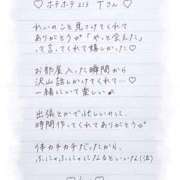 ♡ ホテホテ213 Tさん ♡
れいのこと見つけてくれて
ありがとう💕「やっと会えた」
って言ってくれて嬉しかった♡
お部屋入った瞬間から
沢山話しかけてくれて…
一緒にいて楽しい
出張とかで忙しいのに
時間作ってくれてありがとう♡
体カチカチだったから、
ふにゃふにゃになるといいな(笑)